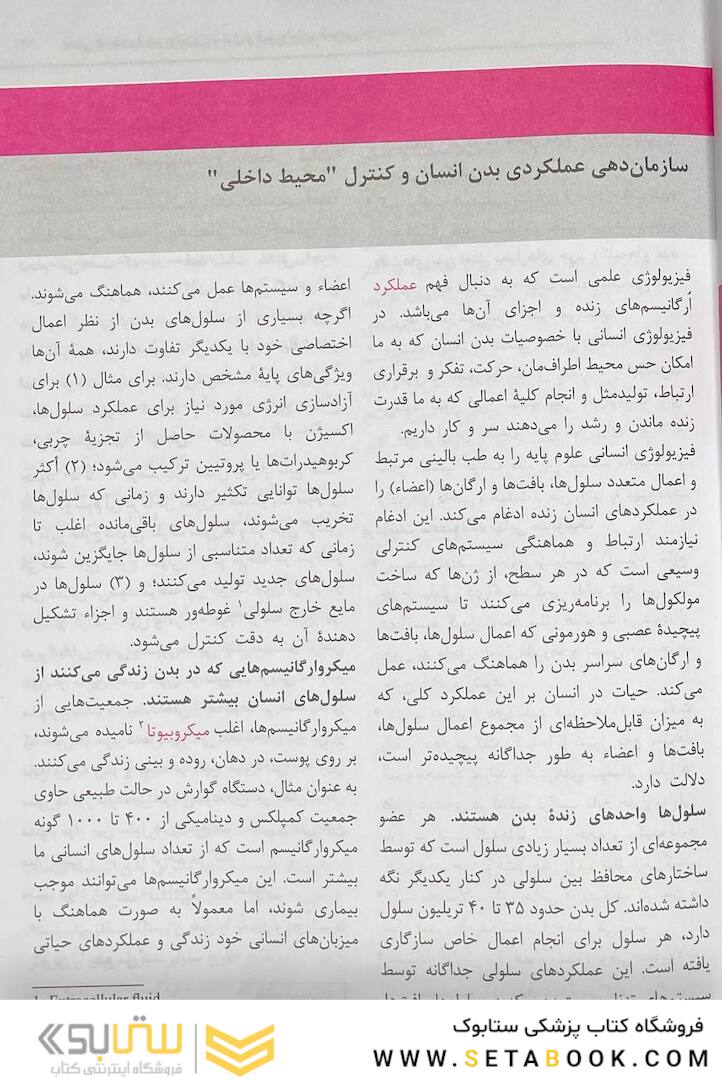 سازمان‌دهی عملکردی بدن انسان و کنترل "محیط داخلی"
فیزیولوژی علمی است که به دنبال فهم عملکرد
اُرگانیسم‌های زنده و اجزای آن‌ها می‌باشد. در
فیزیولوژی انسانی با خصوصیات بدن انسان که به ما
امکان حس محیط اطراف‌مان، حرکت، تفکر و برقراری
ارتباط، تولیدمثل و انجام کلیهٔ اعمالی که به ما قدرت
زنده ماندن و رشد را می‌دهند سر و کار داریم.
فیزیولوژی انسانی علوم پایه را به طب بالینی مرتبط
و اعمال متعدد سلول‌ها، بافت‌ها و ارگان‌ها (اعضاء) را
در عملکردهای انسان زنده ادغام می‌کند. این ادغام
نیازمند ارتباط و هماهنگی سیستم‌های کنترلی
وسیعی است که در هر سطح، از ژن‌ها که ساخت
مولکول‌ها را برنامه‌ریزی می‌کنند تا سیستم‌های
پیچیدهٔ عصبی و هورمونی که اعمال سلول‌ها، بافت‌ها
و ارگان‌های سراسر بدن را هماهنگ می‌کنند، عمل
می‌کند. حیات در انسان بر این عملکرد کلی، که
به میزان قابل‌ملاحظه‌ای از مجموع اعمال سلول‌ها،
بافت‌ها و اعضاء به طور جداگانه پیچیده‌تر است،
دلالت دارد.
سلول‌ها واحدهای زندهٔ بدن هستند. هر عضو
مجموعه‌ای از تعداد بسیار زیادی سلول است که توسط
ساختارهای محافظ بین سلولی در کنار یکدیگر نگه
داشته شده‌اند. کل بدن حدود ۳۵ تا ۴۰ تریلیون سلول
دارد، هر سلول برای انجام اعمال خاص سازگاری
یافته است. این عملکردهای سلولی جداگانه توسط
اعضاء و سیستم‌ها عمل می‌کنند، هماهنگ می‌شوند.
اگرچه بسیاری از سلول‌های بدن از نظر اعمال
اختصاصی خود با یکدیگر تفاوت دارند، همهٔ آن‌ها
ویژگی‌های پایهٔ مشخص دارند. برای مثال (۱) برای
آزادسازی انرژی مورد نیاز برای عملکرد سلول‌ها،
اکسیژن با محصولات حاصل از تجزیهٔ چربی،
کربوهیدرات‌ها یا پروتیین ترکیب می‌شود؛ (۲) أکثر
سلول‌ها توانایی تکثیر دارند و زمانی که سلول‌ها
تخریب می‌شوند، سلول‌های باقی‌مانده اغلب تا
زمانی که تعداد متناسبی از سلول‌ها جایگزین شوند،
سلول‌های جدید تولید می‌کنند؛ و (۳) سلول‌ها در
مایع خارج سلولی۱ غوطه‌ور هستند و اجزاء تشکیل
دهندهٔ آن به دقت کنترل می‌شود.
میکروارگانیسم‌هایی که در بدن زندگی می‌کنند از
سلول‌های انسان بیشتر هستند. جمعیت‌هایی از
میکروارگانیسم‌ها، اغلب میکروبیوتا۲ نامیده می‌شوند،
بر روی پوست، در دهان، روده و بینی زندگی می‌کنند.
به عنوان مثال، دستگاه گوارش در حالت طبیعی حاوی
جمعیت کمپلکس و دینامیکی از ۴۰۰ تا ۱۰۰۰ گونه
میکروارگانیسم است که از تعداد سلول‌های انسانی ما
بیشتر است. این میکروارگانیسم‌ها می‌توانند موجب
بیماری شوند، اما معمولاً به صورت هماهنگ با
میزبان‌های انسانی خود زندگی و عملکردهای حیاتی
1. Extracellular fluid
فروشگاه کتاب پزشکی ستابوک
WWW.SETABOOK.COM
ستابوک
فروشگاه اینترنتی کتاب